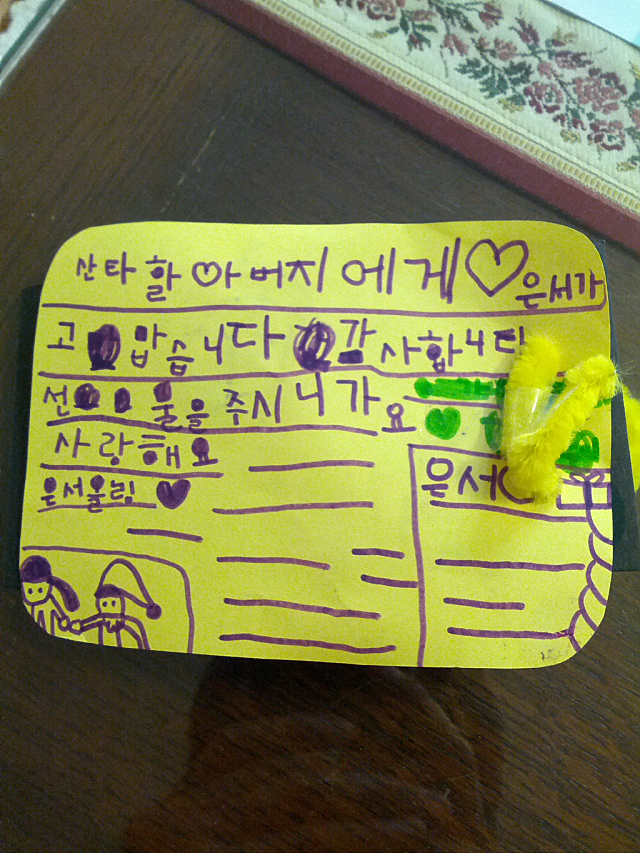 산타 할아버지에게♡은서가
고맙습니다 감사합니다
선물을 주시니가요
사랑해요
은서올림 ♥
은서